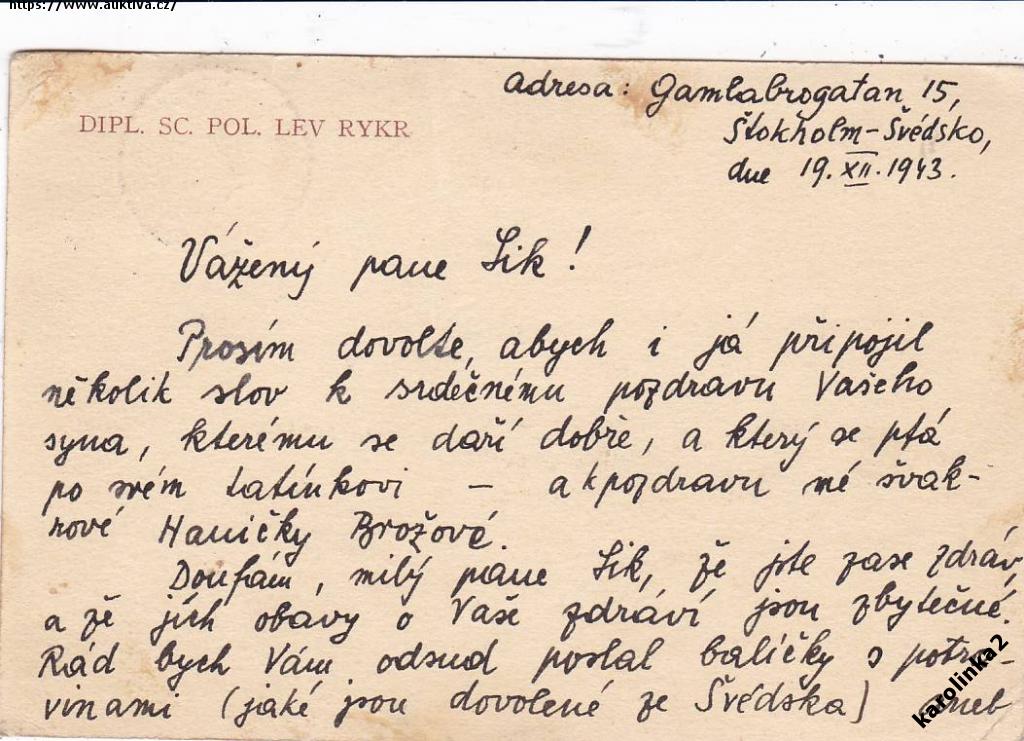 https://www.auktiva.cz/
Adresa: Gamlabrogatan 15,
DIPL. SC. POL. LEV RYKR
Štokholm-Švédsko,
dne 19.XII.1943.
Vážený pane Lik!
Prosím dovolte, abych i já připojil
několik slov k srdečnému pozdravu Vašeho
syna, kterému se daří dobře, a který se ptá
po svém tatínkovi — a k pozdravu mé švak-
rové Haničky Brožové.
Doufám, milý pane Lik, že jste zase zdráv,
a že jich obavy o Vaše zdraví jsou zbytečné.
Rád bych Vám odsud poslal balíčky s potra-
vinami (jaké jsou dovolené ze Švédska)
karolinka2